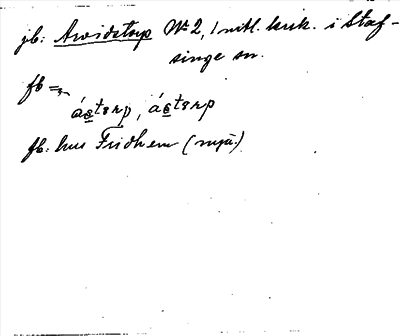 jb: Arvidstorp No 2, 1 mtl. krk. i Staf-
singe sn.
fb =
ást8rp, ást8rp
fb: hus Fridhem (nyä.)